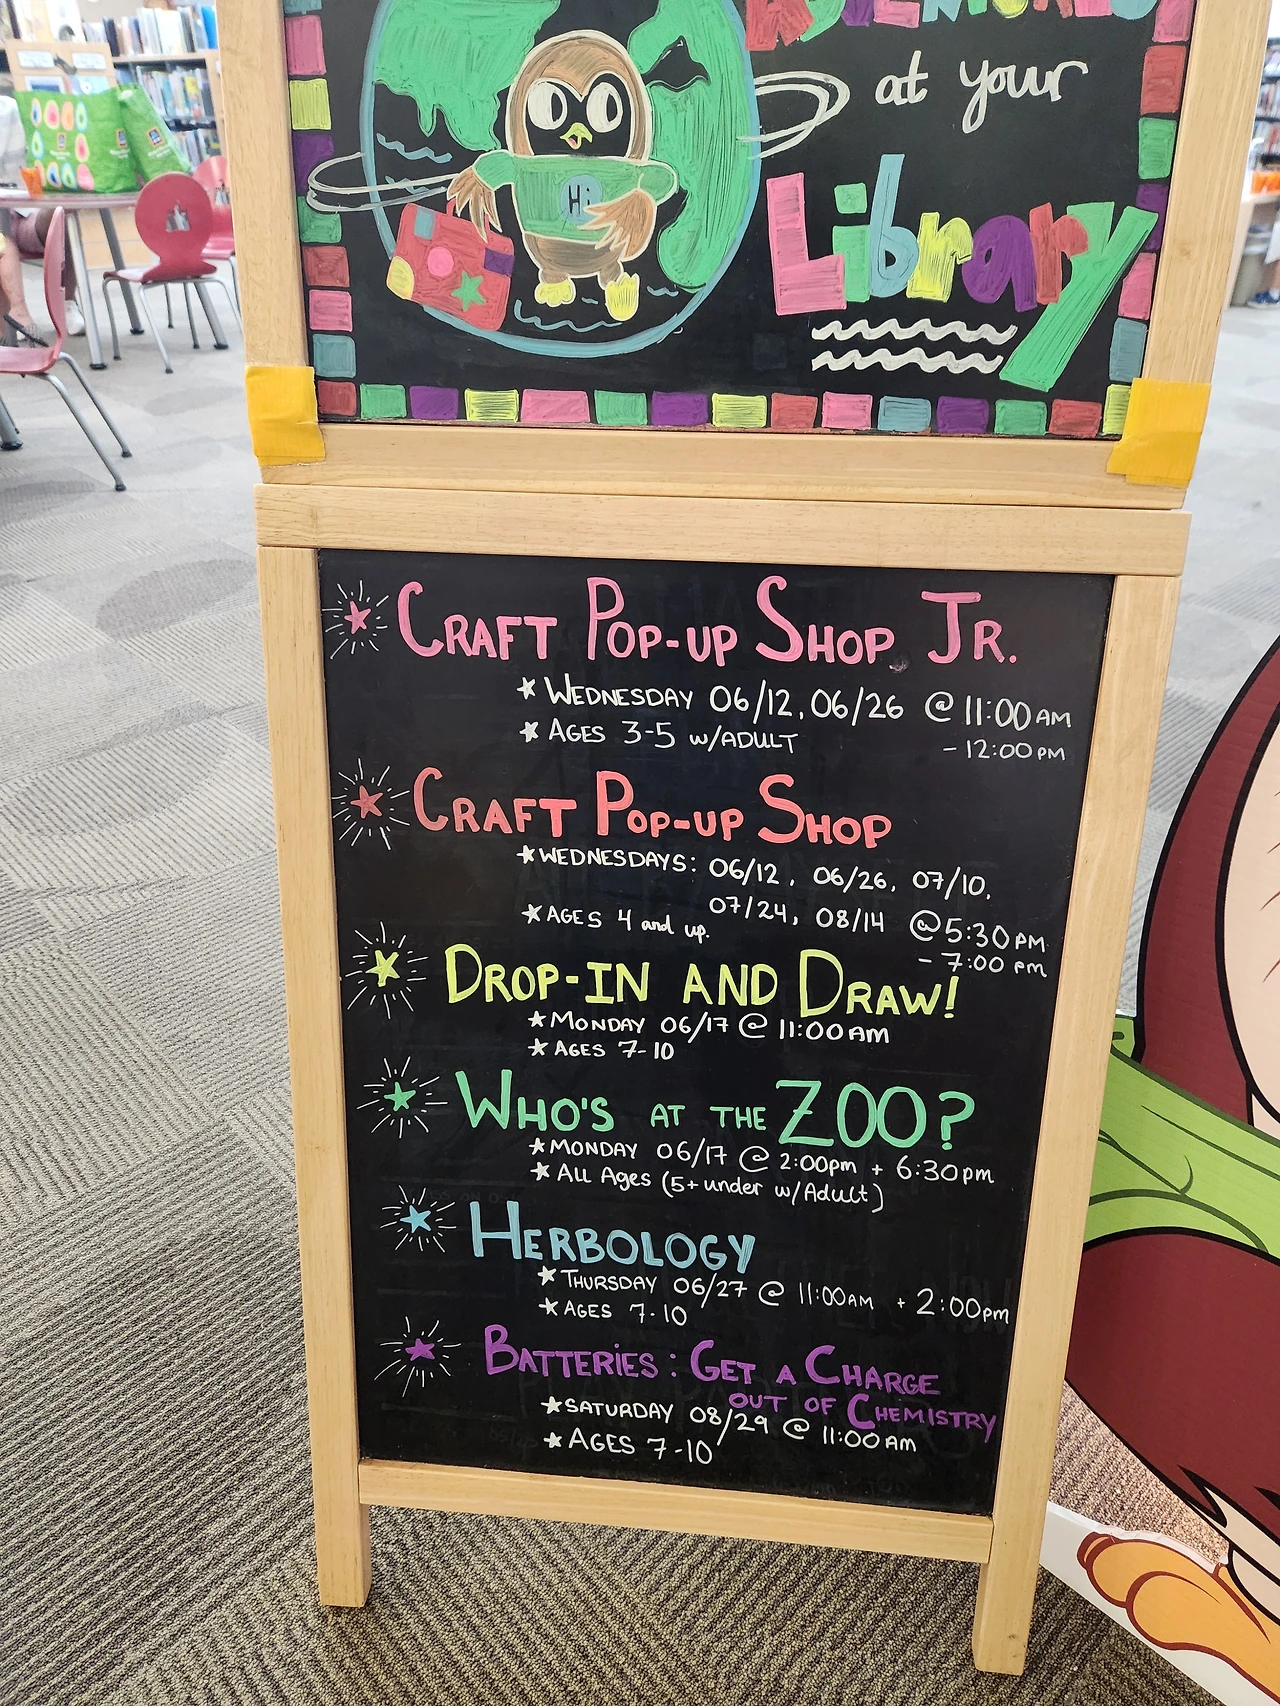 at your
Library
Hi
CRAFT POP-UP SHOP JR.
WEDNESDAY 06/12, 06/26 @ 11:00 AM
- 12:00 PM
AGES 3-5 W/ADULT
CRAFT POP-UP SHOP
WEDNESDAYS: 06/12, 06/26, 07/10,
07/24, 08/14 @ 5:30 PM
- 7:00 pm
AGES 4 and up.
DROP-IN AND DRAW!
MONDAY 06/17 @ 11:00 AM
AGES 7-10
WHO'S AT THE ZOO?
MONDAY 06/17 @ 2:00pm + 6:30pm
ALL Ages (5+under w/Adult)
HERBOLOGY
THURSDAY 06/27 @ 11:00AM + 2:00pm
AGES 7-10
BATTERIES: GET A CHARGE
OUT OF CHEMISTRY
SATURDAY 08/29 @ 11:00 AM
AGES 7-10